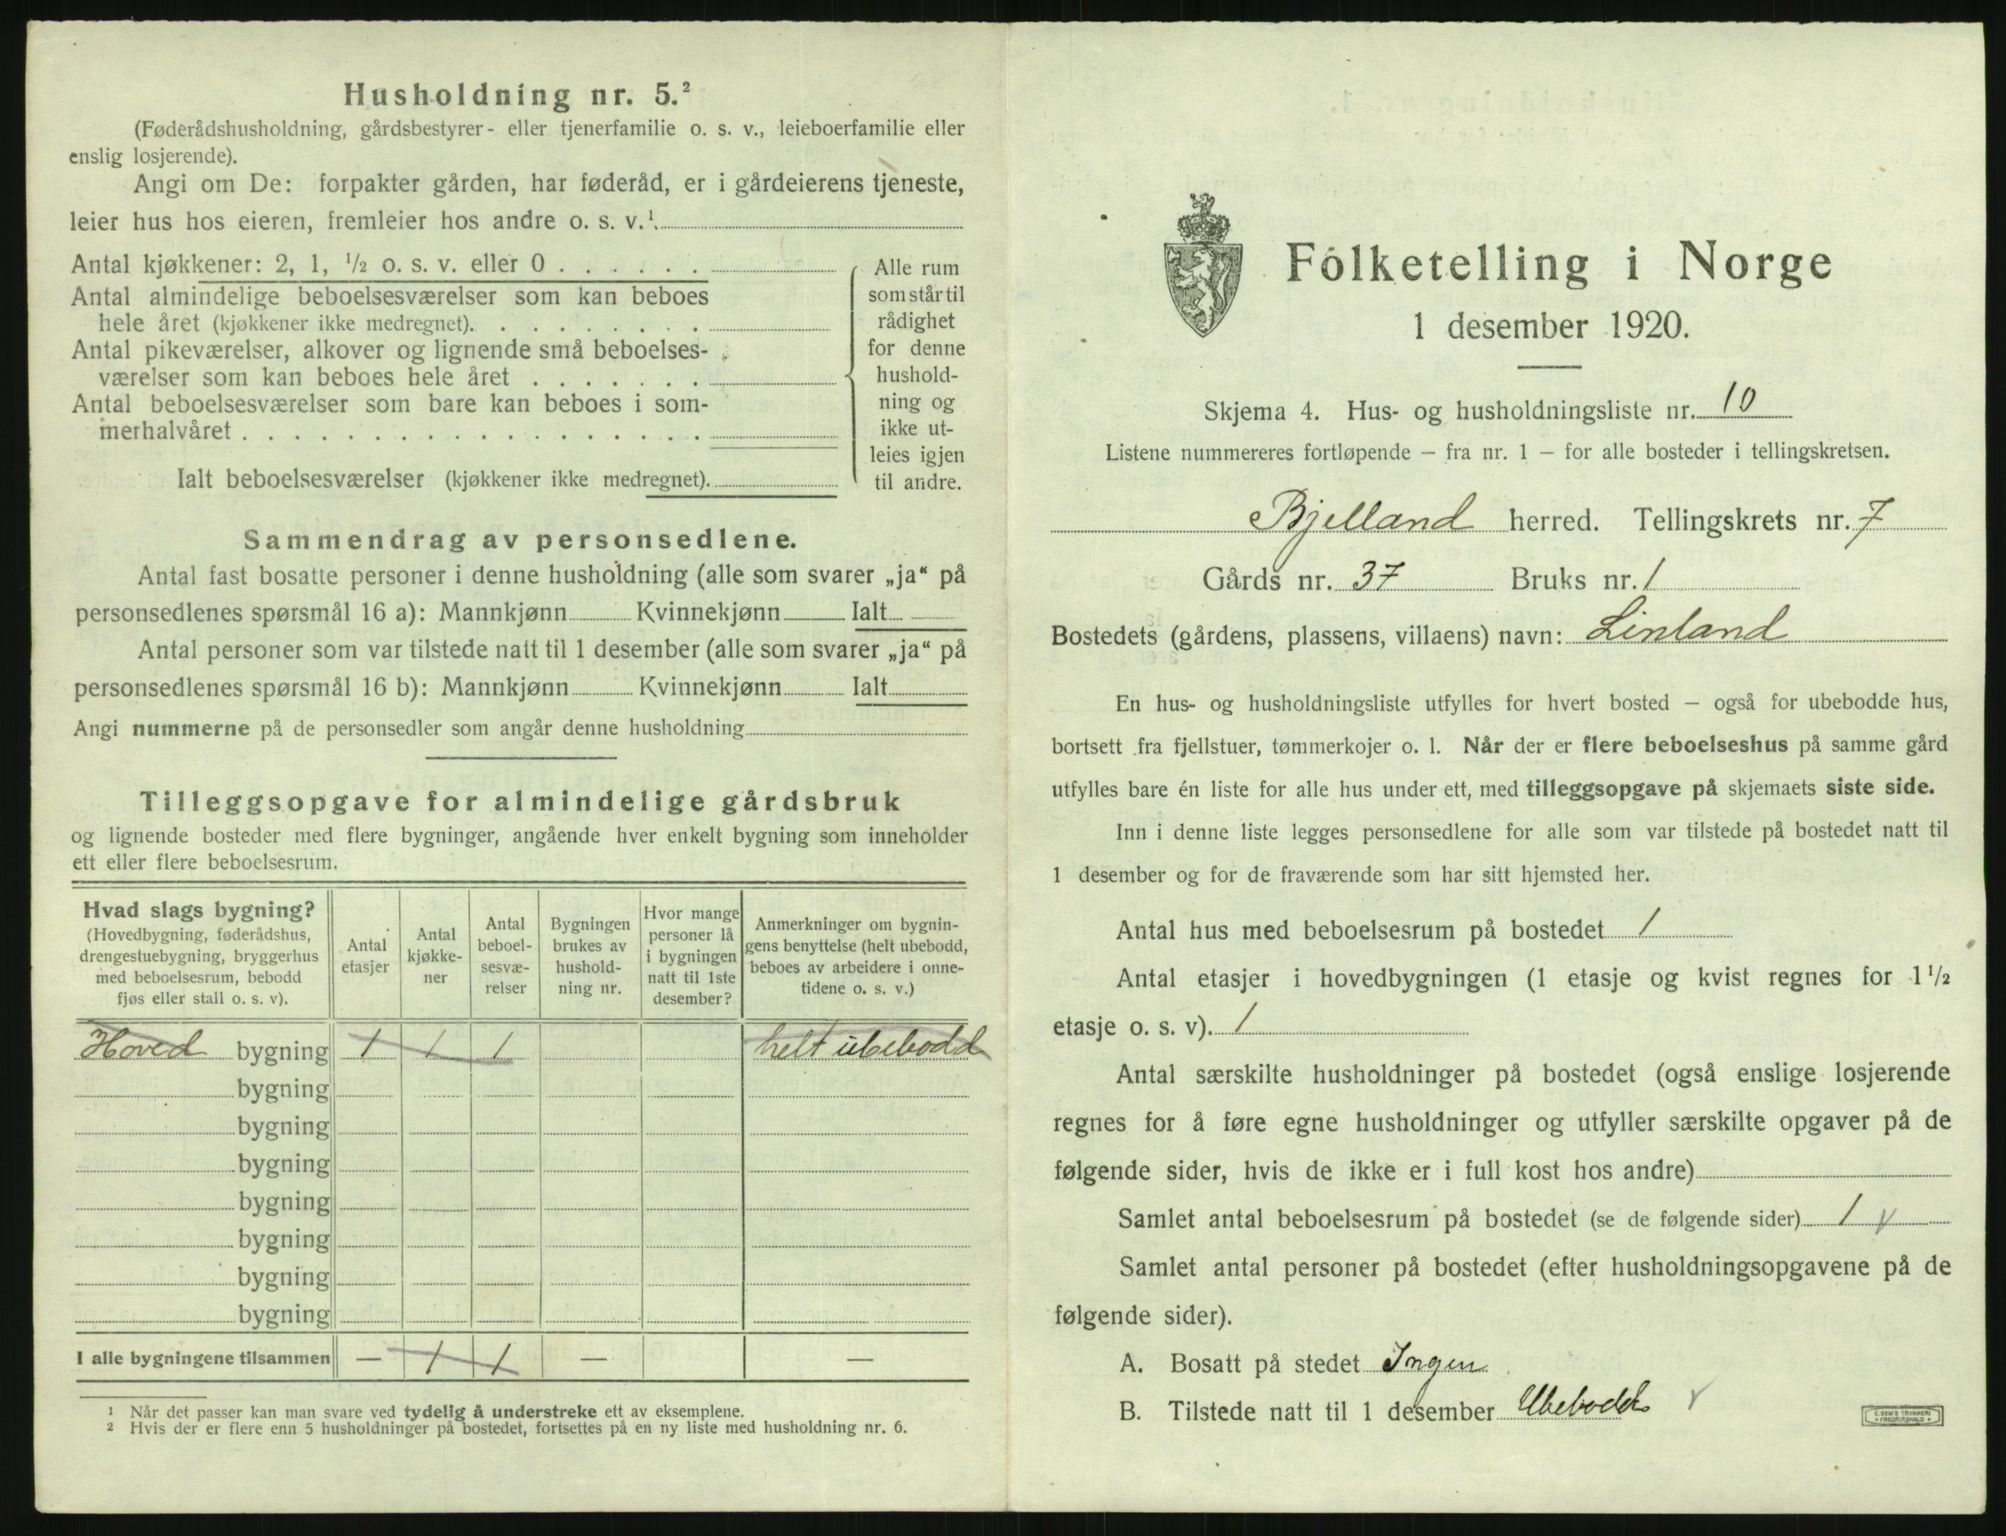 Husholdning nr. 5.²
(Føderådshusholdning, gårdsbestyrer- eller tjenerfamilie o. s. v., leieboerfamilie eller
enslig losjerende).
Angi om De: forpakter gården, har føderåd, er i gårdeierens tjeneste,
leier hus hos eieren, fremleier hos andre o. s. v.¹
Antal kjøkkener: 2, 1, ½ o. s. v. eller 0 . . . . . .
Antal almindelige beboelsesværelser som kan beboes
hele året (kjøkkener ikke medregnet). . . . . . . . .
Antal pikeværelser, alkover og lignende små beboelses-
værelser som kan beboes hele året . . . . . . .
Antal beboelsesværelser som bare kan beboes i som-
merhalvåret . . . . . . . . . . . . . . . . . .
Ialt beboelsesværelser (kjøkkener ikke medregnet).
Alle rum
som står til
rådighet
for denne
hushold-
ning og
ikke ut-
leies igjen
til andre.
Sammendrag av personsedlene.
Antal fast bosatte personer i denne husholdning (alle som svarer „ja“ på
personsedlenes spørsmål 16 a): Mannkjønn Kvinnekjønn Ialt
Antal personer som var tilstede natt til 1 desember (alle som svarer „ja“ på
personsedlenes spørsmål 16 b): Mannkjønn Kvinnekjønn Ialt
Angi nummerne på de personsedler som angår denne husholdning
Tilleggsopgave for almindelige gårdsbruk
og lignende bosteder med flere bygninger, angående hver enkelt bygning som inneholder
ett eller flere beboelsesrum.
Hvad slags bygning?
(Hovedbygning, føderådshus,
drengestuebygning, bryggerhus
med beboelsesrum, bebodd
fjøs eller stall o. s. v).
Antal
etasjer
Antal
kjøkke-
ner
Antal
beboel-
sesvæ-
relser
Bygningen
brukes av
hushold-
ning nr.
Hvor mange
personer lå
i bygningen
natt til 1ste
desember?
Anmerkninger om bygnin-
gens benyttelse (helt ubebodd,
beboes av arbeidere i onne-
tidene o. s. v.)
Hoved bygning 1 1 1 helt ubebodd
bygning
bygning
bygning
bygning
bygning
bygning
bygning
I alle bygningene tilsammen — 1 1 — —
¹ Når det passer kan man svare ved tydelig å understreke ett av eksemplene.
² Hvis der er flere enn 5 husholdninger på bostedet, fortsettes på en ny liste med husholdning nr. 6.
Folketelling i Norge
1 desember 1920.
Skjema 4. Hus- og husholdningsliste nr. 10
Listene nummereres fortløpende – fra nr. 1 – for alle bosteder i tellingskretsen.
Bjelland herred. Tellingskrets nr. 7
Gårds nr. 37 Bruks nr. 1
Bostedets (gårdens, plassens, villaens) navn: Linland
En hus- og husholdningsliste utfylles for hvert bosted – også for ubebodde hus,
bortsett fra fjellstuer, tømmerkojer o. l. Når der er flere beboelseshus på samme gård
utfylles bare én liste for alle hus under ett, med tilleggsopgave på skjemaets siste side.
Inn i denne liste legges personsedlene for alle som var tilstede på bostedet natt til
1 desember og for de fraværende som har sitt hjemsted her.
Antal hus med beboelsesrum på bostedet 1
Antal etasjer i hovedbygningen (1 etasje og kvist regnes for 1½
etasje o. s. v). 1
Antal særskilte husholdninger på bostedet (også enslige losjerende
regnes for å føre egne husholdninger og utfyller særskilte opgaver på de
følgende sider, hvis de ikke er i full kost hos andre)
Samlet antal beboelsesrum på bostedet (se de følgende sider) 1 v
Samlet antal personer på bostedet (efter husholdningsopgavene på de
følgende sider).
A. Bosatt på stedet Ingen
B. Tilstede natt til 1 desember Ubebodd v